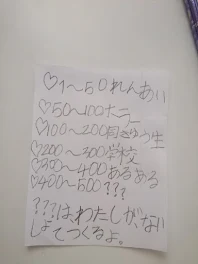 ♡1〜50れんあい
♡50〜100ホラー
♡100〜200同きゅう生
♡200〜300学校
♡300〜400あるある
♡400〜500???
???はわたしが、ない
しょでつくるよ。